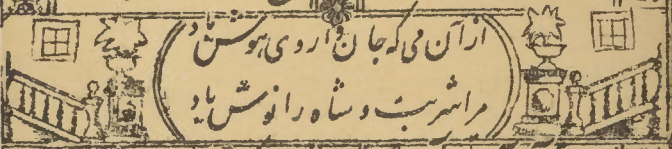 ازآن می که جان داروی هوش باد
مرا شربت و شاه را نوش باد